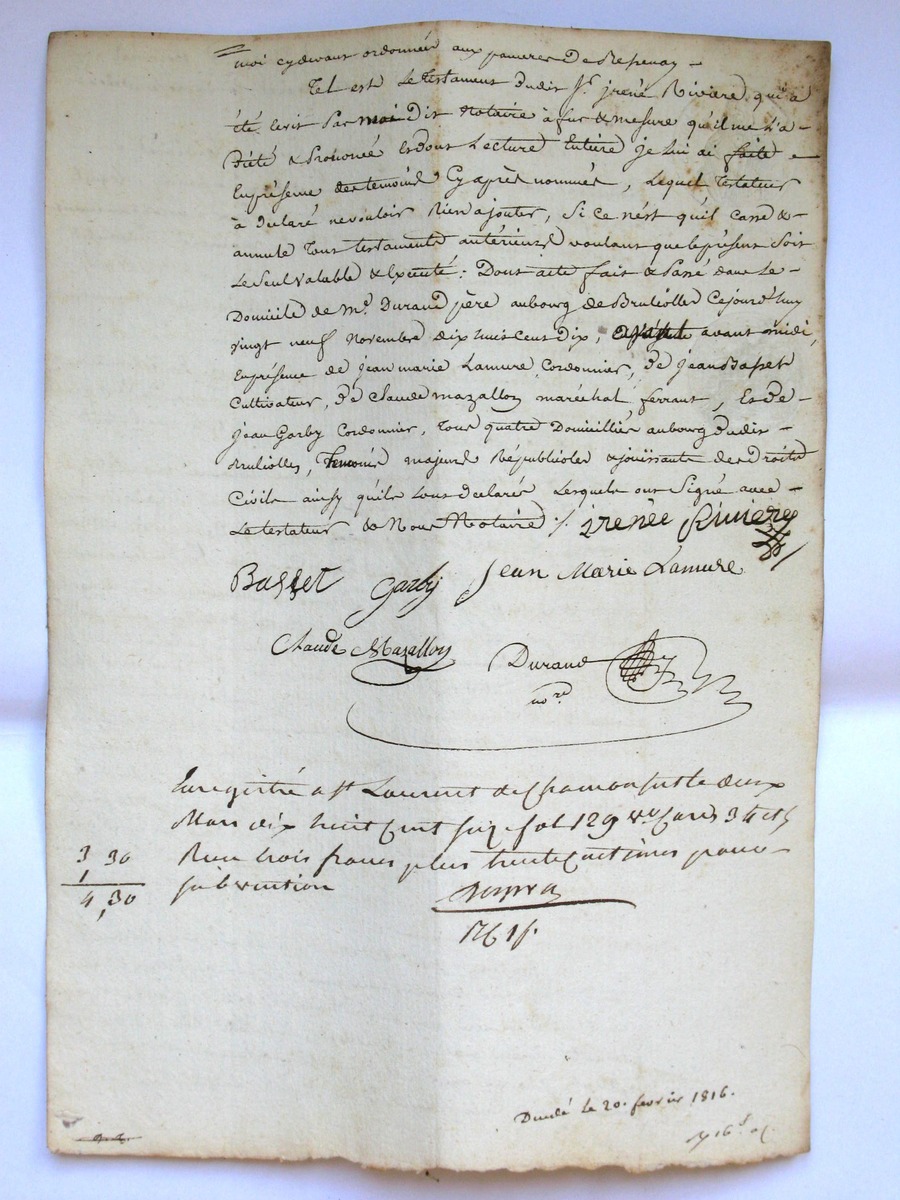 moi cydevant ordonnée aux pauvres De
Tel est Le Testament Dudit Sr. jrené Riviere qui a
été Ecrit Par moi Dit Notaire à fur & mesure qu'il me l'a
Dicté & Prononcé Et Dont Lecture Entiere Je lui ai faite
En présence des temoins Cy après nommés, Lequel Testateur
à Declaré ne vouloir Rien ajouter, Si ce n'est qu'il casse &
annule Tous testaments antérieurs voulant que le présent Soit
Le Seul Valable & Exécuté : Dont acte fait & Passé dans Le
Domicile de Me. Durand père au bourg de Brulliolles Cejourd'huy
vingt neuf Novembre dix huit Cent Dix, avant midi,
En présence de Jean marie Lamure Cordonnier, De Jean Basset
Cultivateur, De Claude mazallon maréchal ferrant, Et De
Jean Garby Cordonnier, Tous quatre Domiciliés au bourg Dudit
Brulliolles, Temoins majeurs Républicoles & jouissants des Droits
Civils ainsy qu'ils Lont declarés Lesquels ont Signé avec
Le testateur & Nous Notaire ./. irenée Riviere
Basset Garby Jean Marie Lamure
Claude Mazallon Durand
nore.
Enregistré a st Laurent de Chamousset le deux
Mars dix huit Cent Seize fol. 129 vo. Cases 3 4 et 5
3,30 Reçu trois francs plus trente Centimes pour
1
4,30 subvention
Duclé Le 20. fevrier 1816.